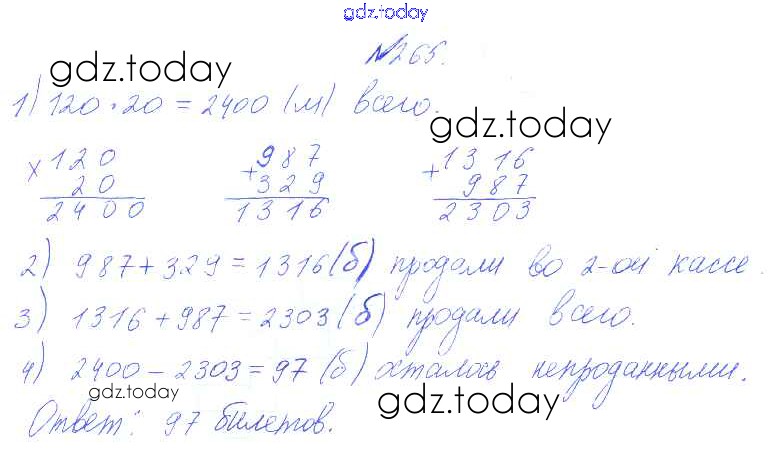 gdz.today
№265.
gdz.today
1) 120 · 20 = 2400 (м) всего.
gdz.today
× 120
20
2400
+ 987
329
1316
+ 1316
987
2303
2) 987 + 329 = 1316 (б) продали во 2-ой кассе.
3) 1316 + 987 = 2303 (б) продали всего.
4) 2400 - 2303 = 97 (б) осталось непроданными.
gdz.today
gdz.today
Ответ: 97 билетов.